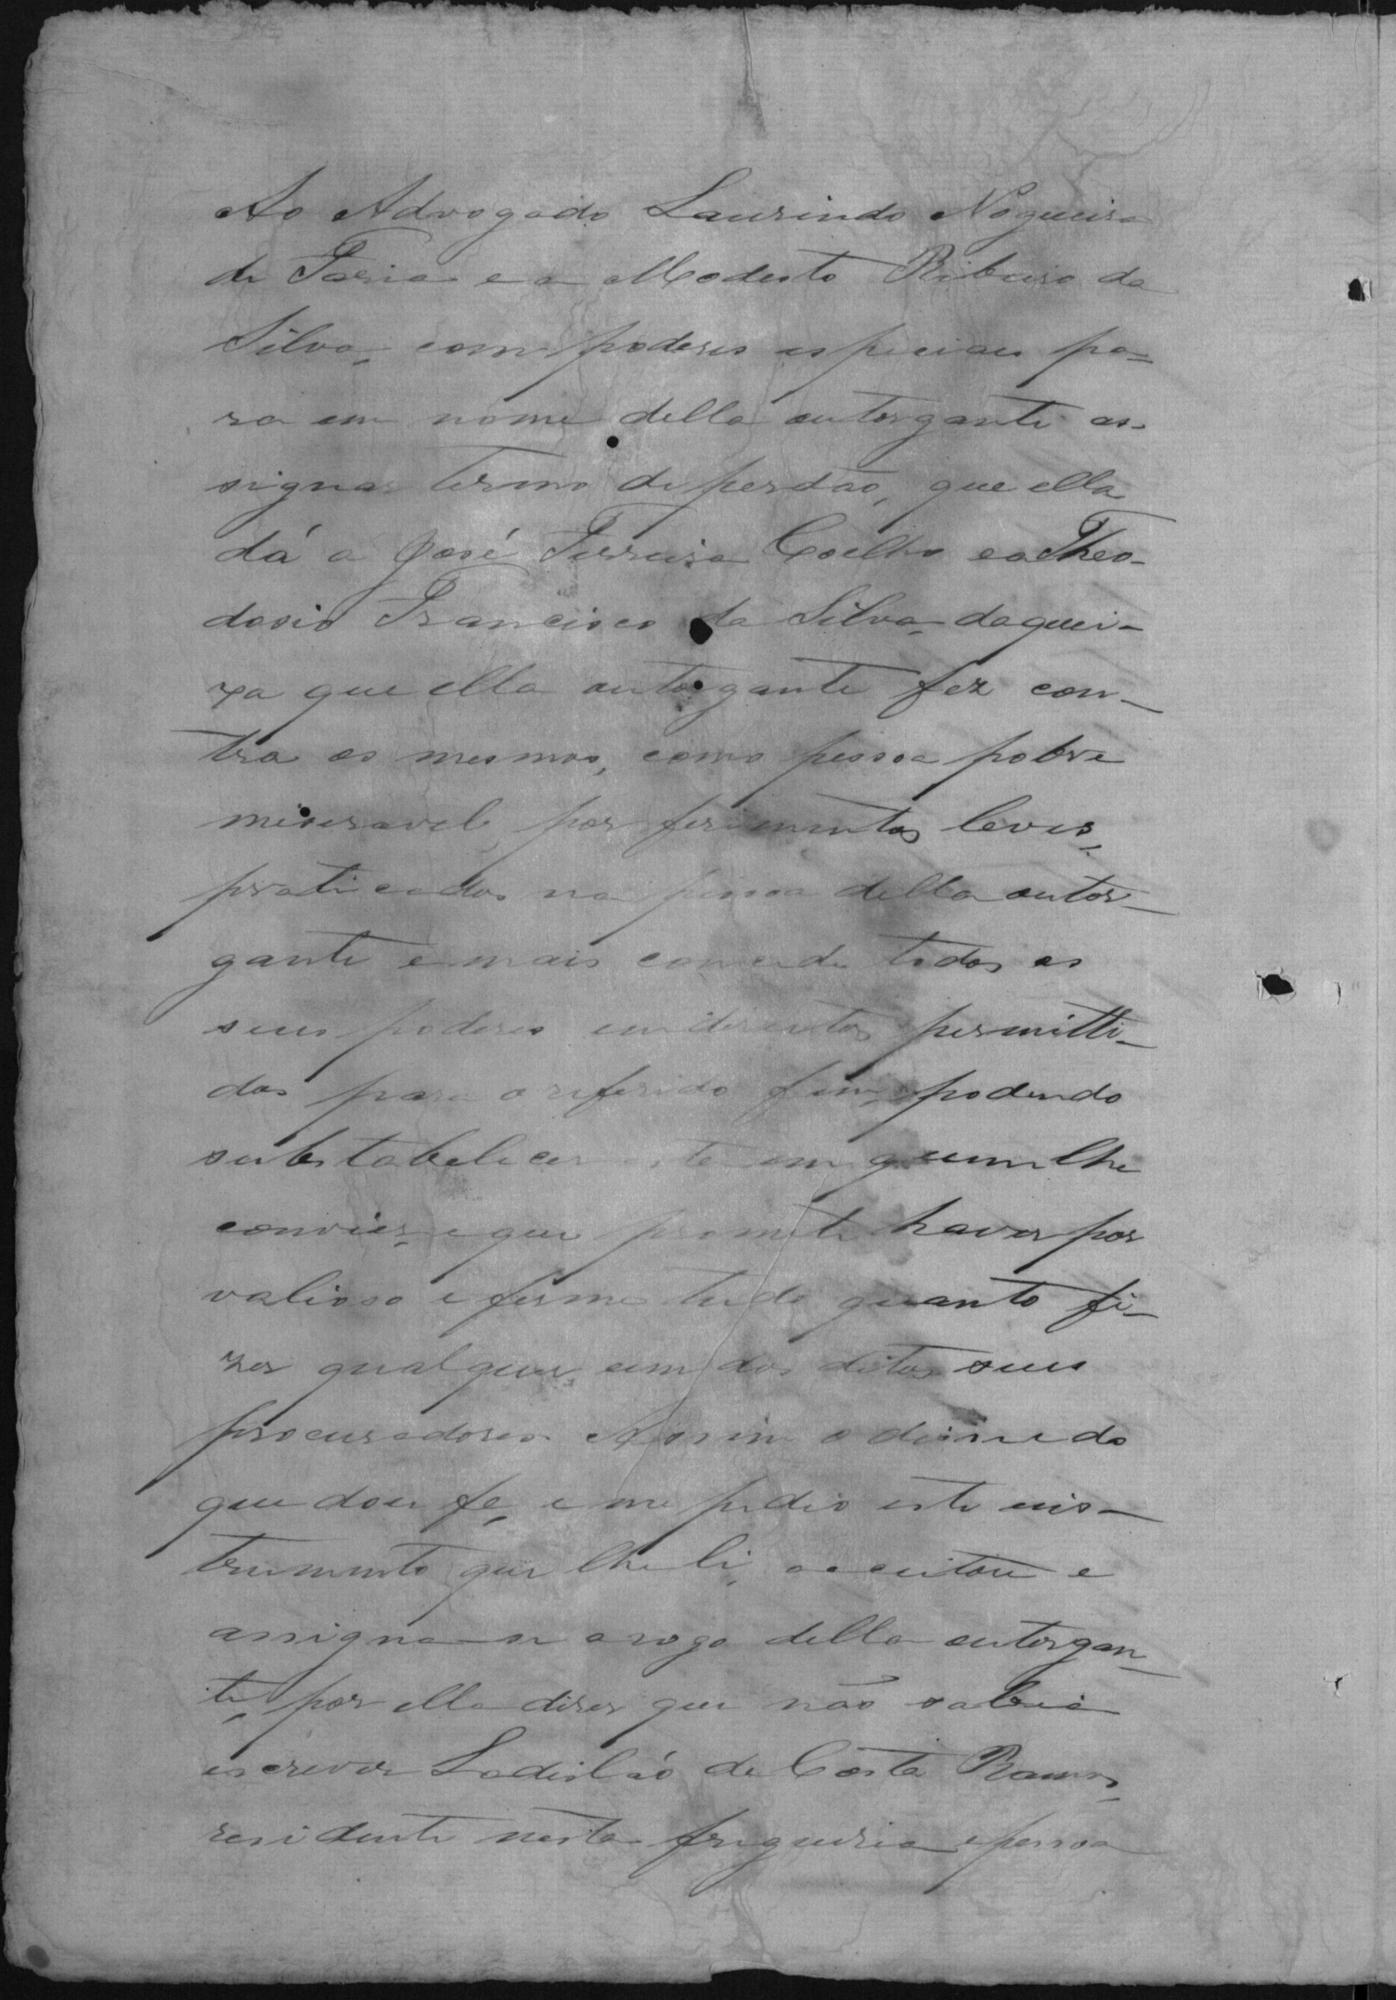 Ao Advogado Laurindo Nogueira
de Faria e a Modesto Ribeiro da
Silva, com poderes especiaes pa-
ra em nome della outorgante as-
signar termo de perdão, que ella
dá a José Ferreira Coelho e a Theo-
dosio Francisco da Silva, da quei-
xa que ella outorgante fez con-
tra os mesmos, como pessoa pobre
miseravel, por ferimentos leves,
praticados na pessoa della outor-
gante e mais concede todos os
seus poderes em direito permitti-
dos para o referido fim, podendo
substabelecer esta em quem lhe
convier, e que promette haver por
valioso e firme tudo quanto fi-
zer qualquer um dos ditos seus
procuradores. Assim o disse do
que dou fé, e me pedio este ins-
trumento que lhe li, acceitou e
assigna-se a rogo della outorgan-
te, por ella dizer que não sabia
escrever Ladisláo da Costa Ramos,
residente nesta freguezia e pessoa